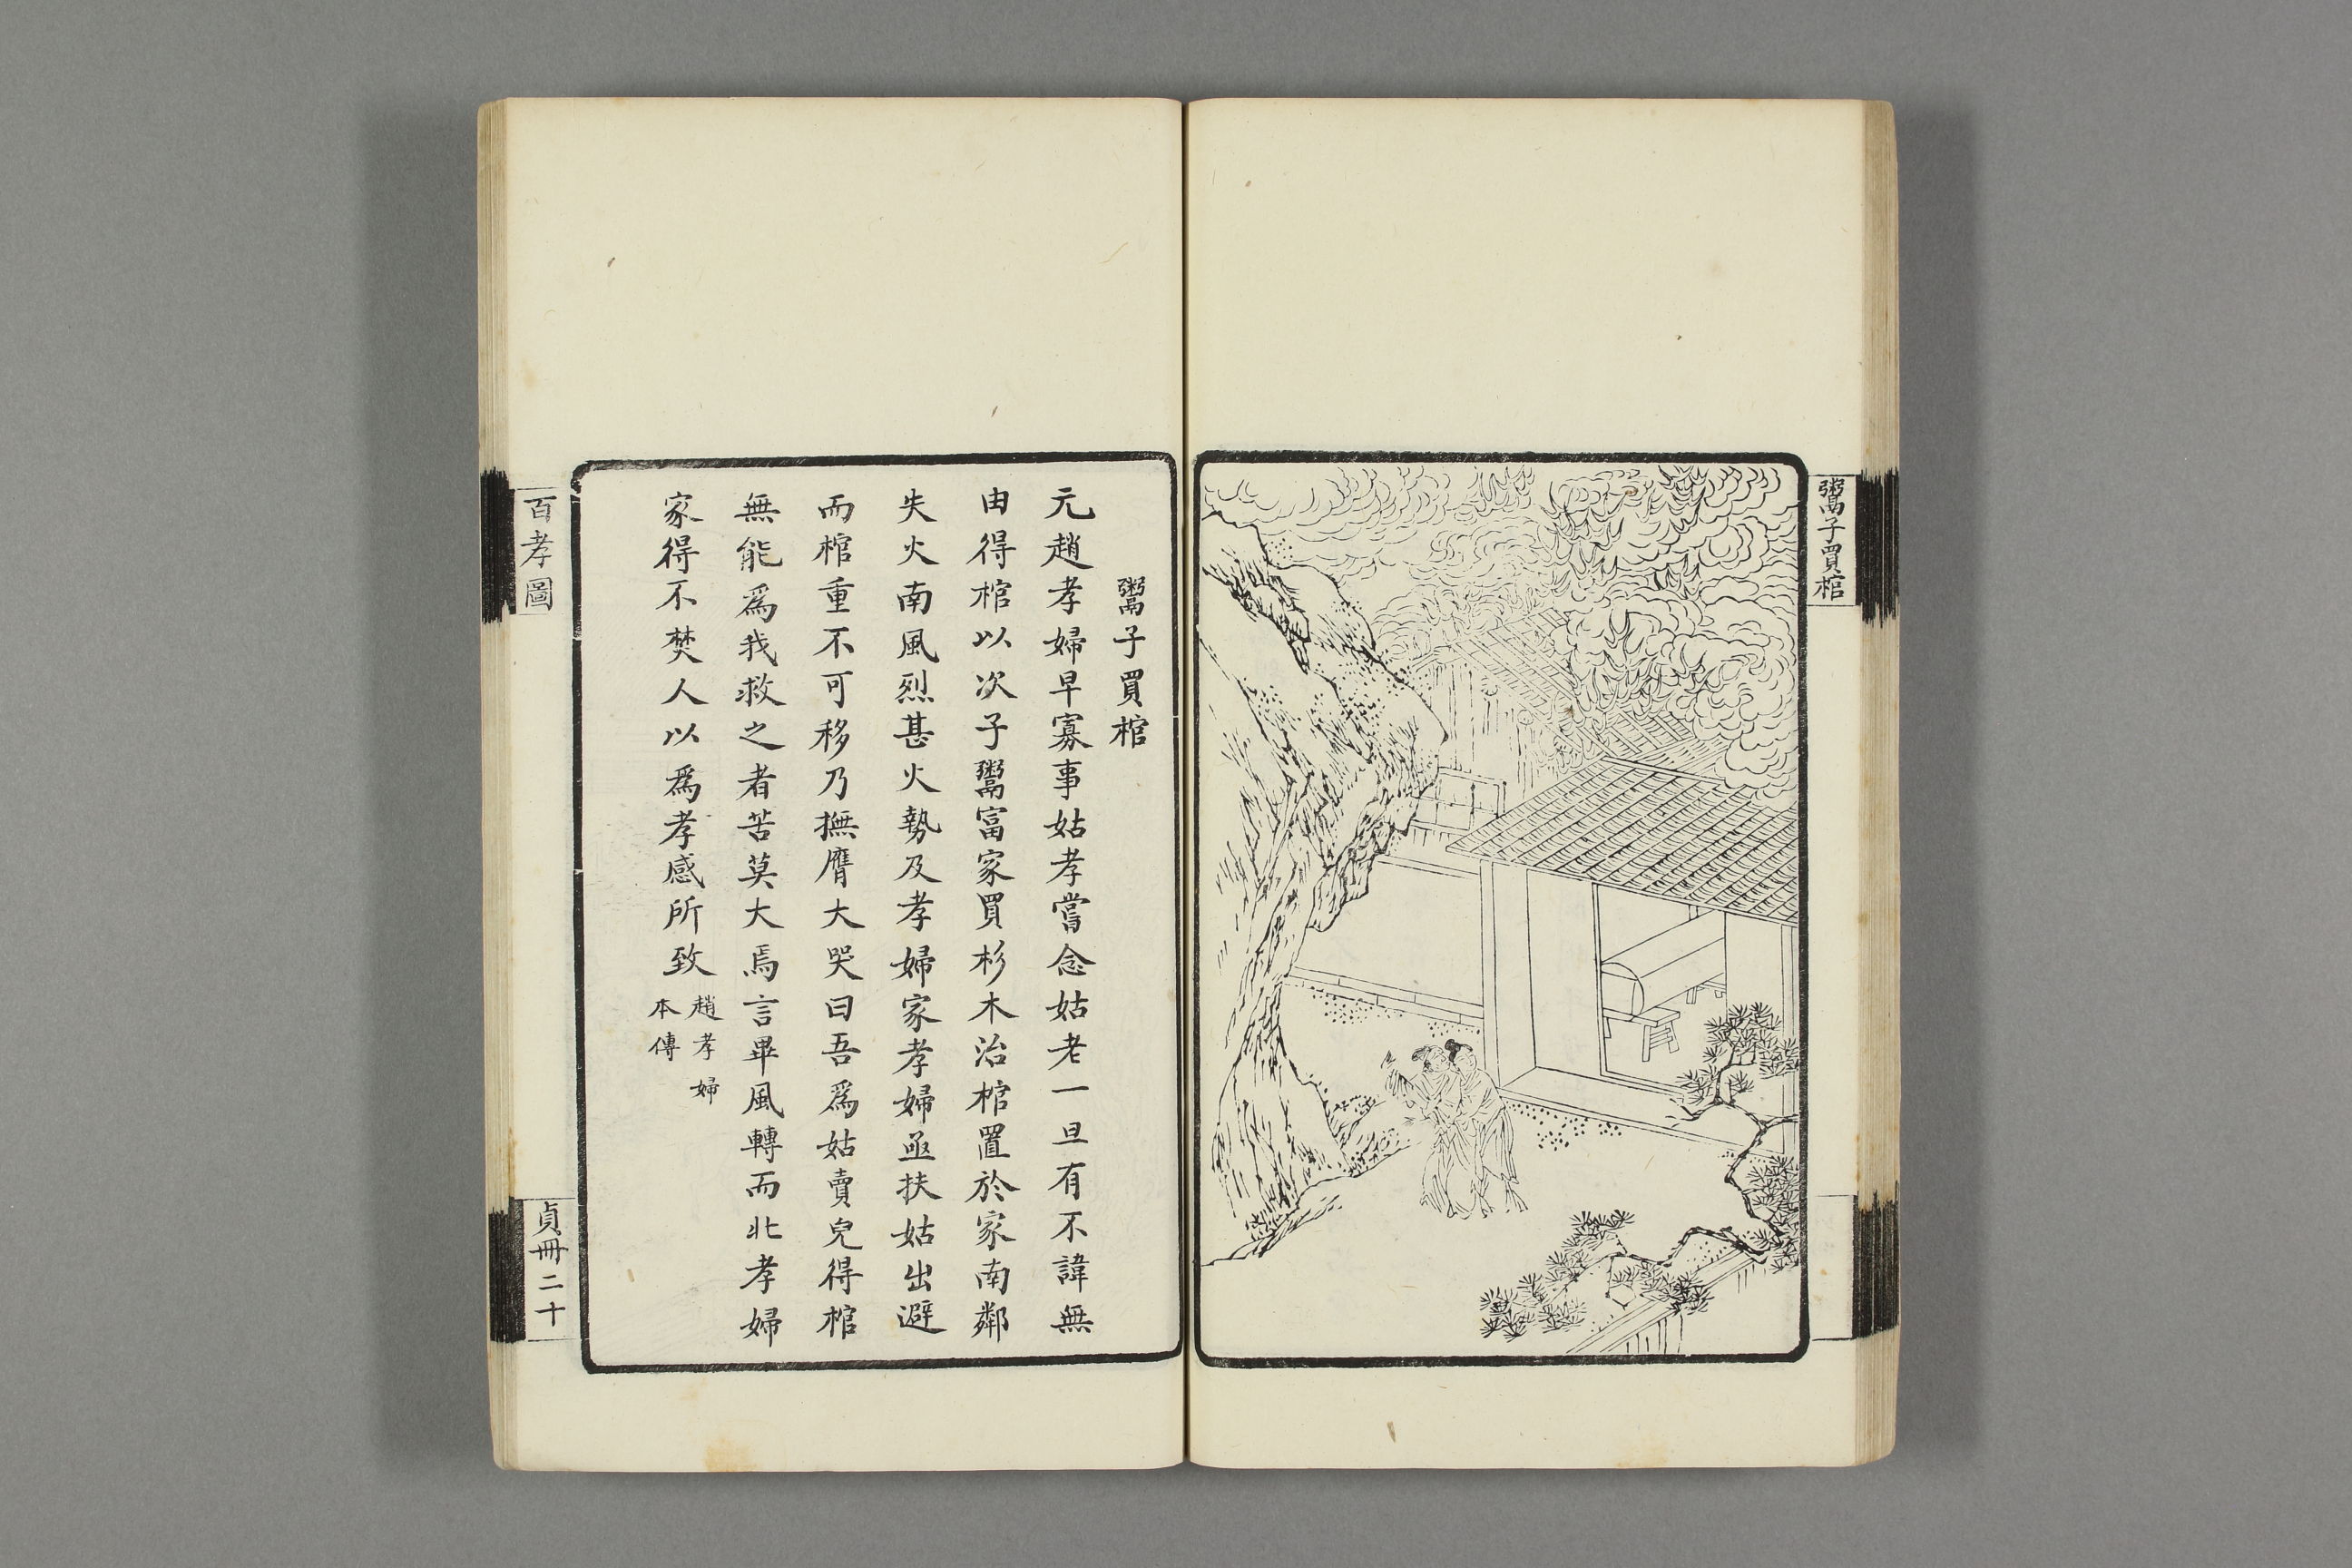 鬻子買棺
鬻子買棺
元趙孝婦早寡事姑孝嘗念姑老一旦有不諱無
由得棺以次子鬻富家買杉木治棺置於家南鄰
失火南風烈甚火勢及孝婦家孝婦亟扶姑出避
而棺重不可移乃撫膺大哭曰吾爲姑賣兒得棺
無能爲我救之者苦莫大焉言畢風轉而北孝婦
家得不焚人以爲孝感所致
趙孝婦
本傳
百孝圖
貞冊二十